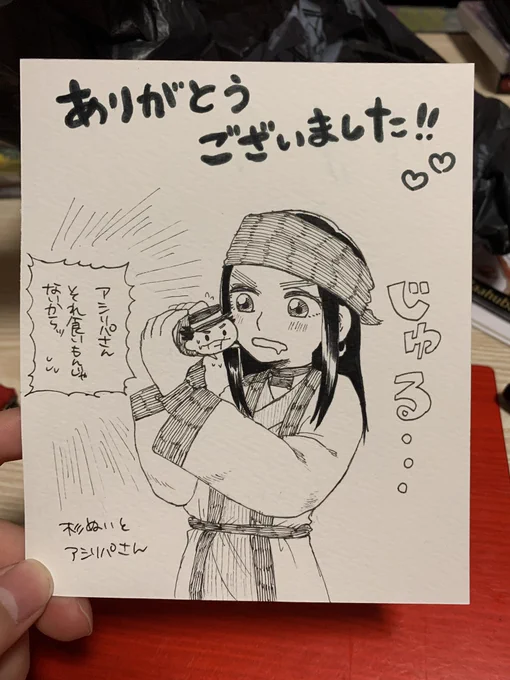 ありがとう
ございました!!
アシリパさん
それ食いもんじゃ
ないからッ
じゅる...
杉ぬいと
アシリパさん